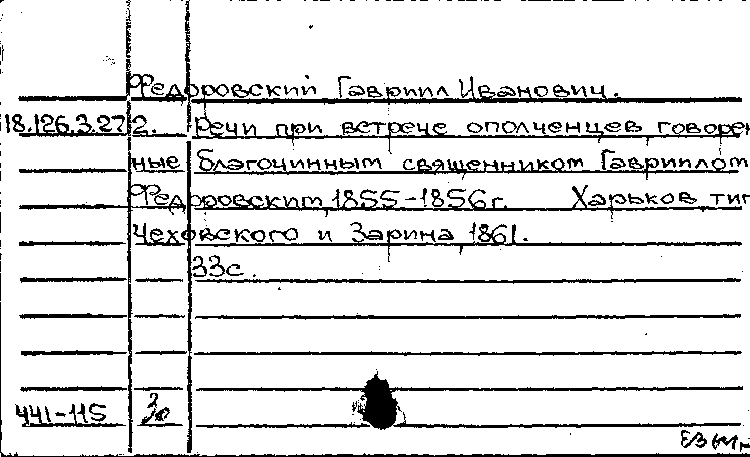 Федоровский Гавриил Иванович.
18.126.3.272. Речи при встрече ополченцев говорен
ные благочинным священником Гавриилом
Федоровским, 1855-1856г. Харьков, тип
Чеховского и Зарина, 1861.
33с.
441-115